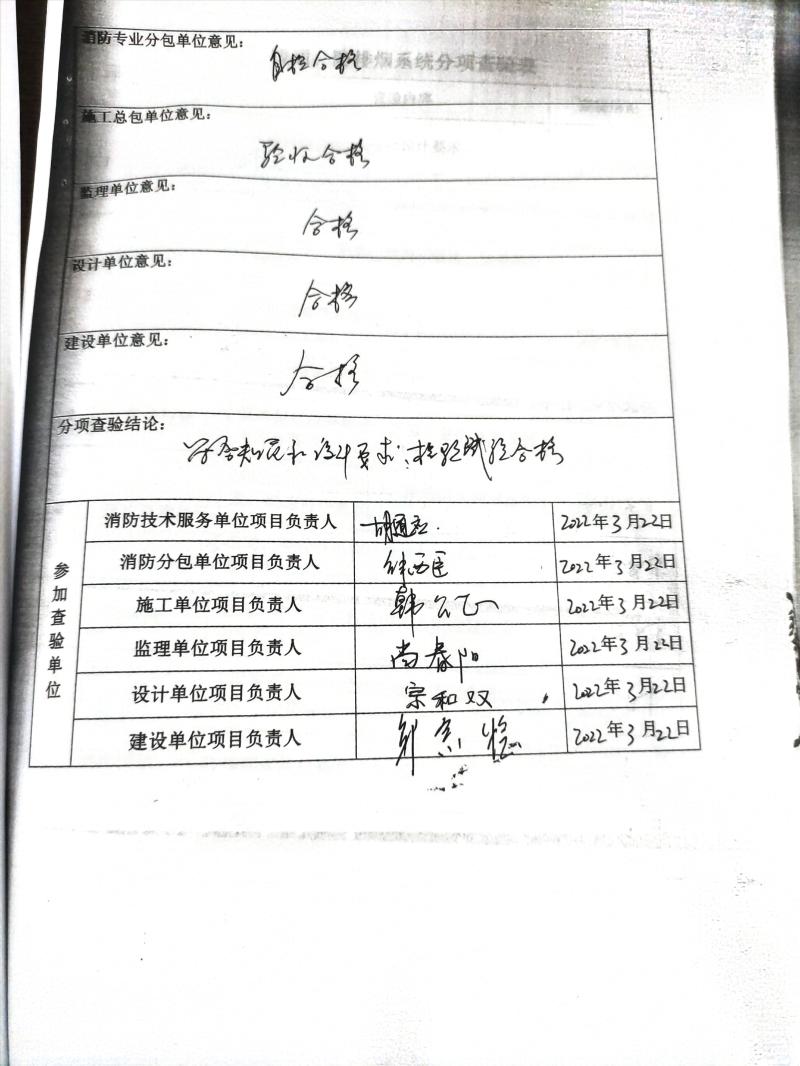 消防专业分包单位意见：
自检合格
施工总包单位意见：
验收合格
监理单位意见：
合格
设计单位意见：
合格
建设单位意见：
合格
分项查验结论：
符合规范和设计要求，检验试验合格
参加查验单位
消防技术服务单位项目负责人 2022年3月22日
消防分包单位项目负责人 2022年3月22日
施工单位项目负责人 韩公正 2022年3月22日
监理单位项目负责人 尚春阳 2022年3月22日
设计单位项目负责人 宗和双 2022年3月22日
建设单位项目负责人 2022年3月22日